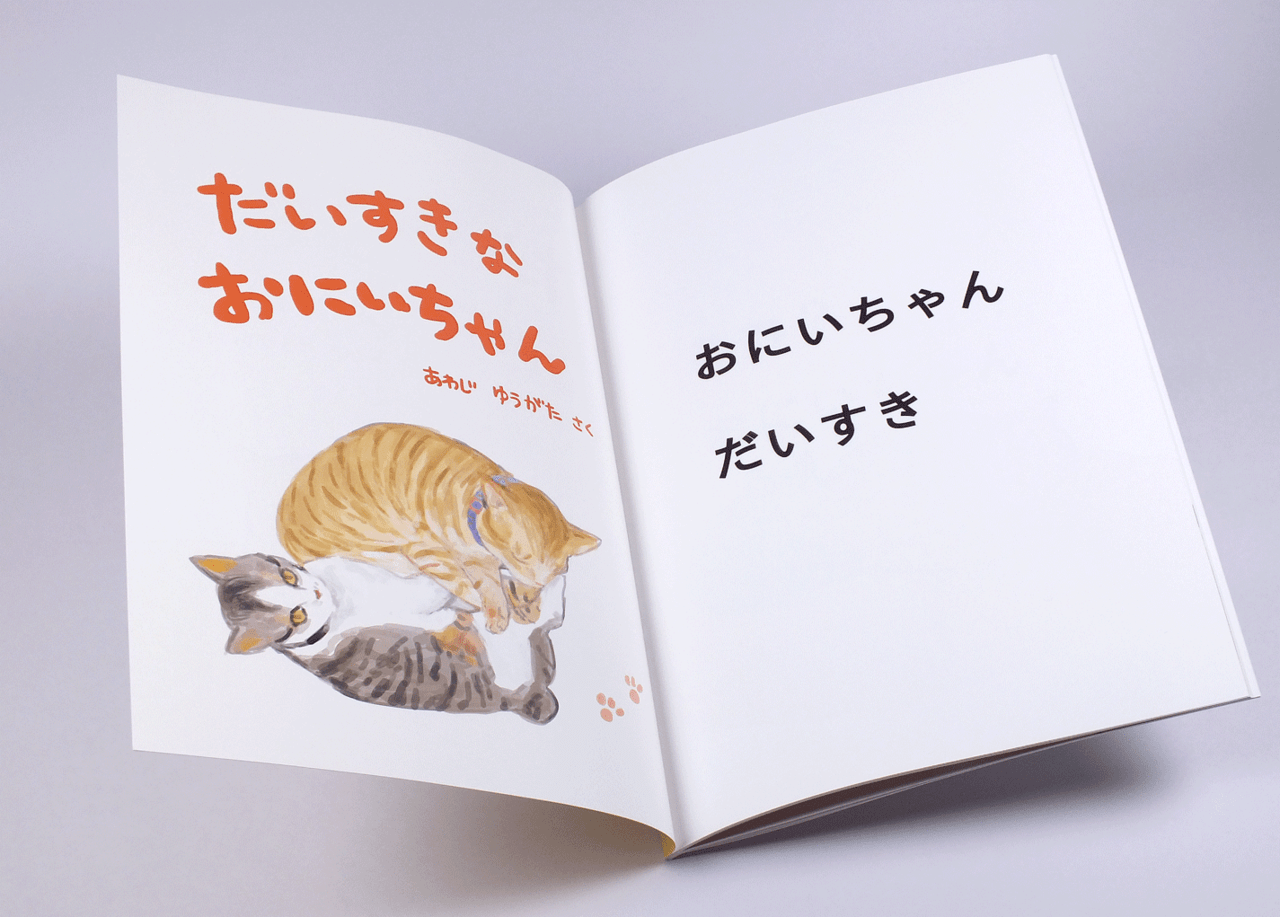 だいすきな
おにいちゃん
あわじ ゆうがた さく
おにいちゃん
だいすき